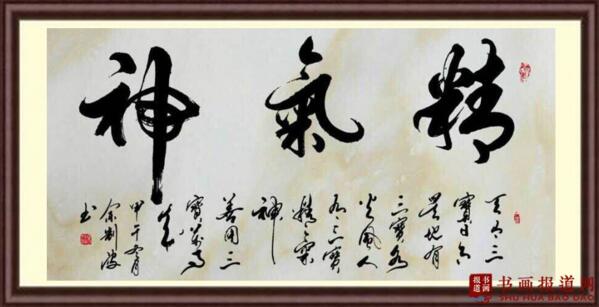 精氣神
天有三
寶日月
星地有
三寶水
火風人
有三寶
精氣
神
善用三
寶萬事
成
甲午月
书
书画报道
书画报道网
SHU HUA BAO DAO